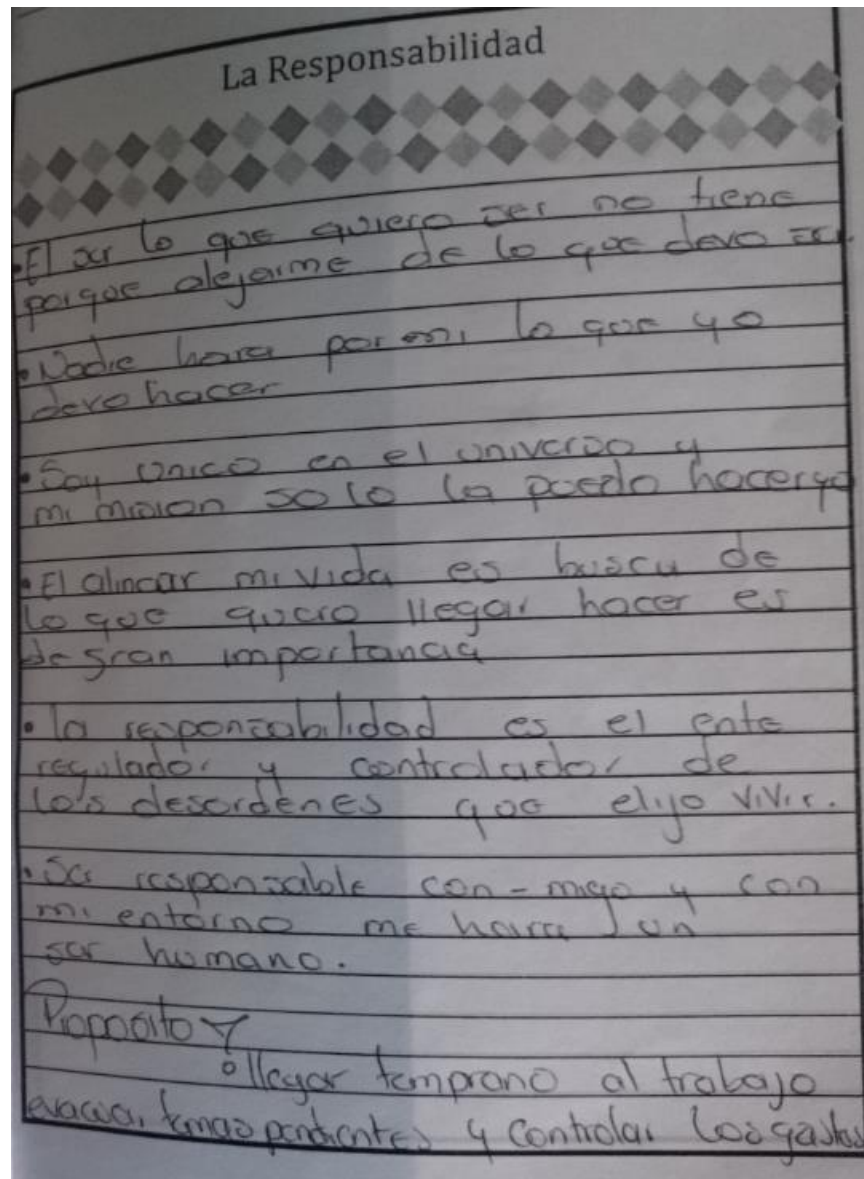 La Responsabilidad
• El ser lo que quiero ser no tiene
porque alejarme de lo que devo ser.
• Nadie hara por mi lo que yo
devo hacer
• Soy unico en el universo y
mi mision solo la puedo hacer yo
• El alinear mi vida es busca de
lo que quiero llegar hacer es
de gran importancia
• la responsabilidad es el ente
regulador y controlador de
los desordenes que elijo vivir.
• Ser responsable con-migo y con
mi entorno me hara un
ser humano.
Proposito
° llegar temprano al trabajo
evacuar temas pendientes y controlar los gastos